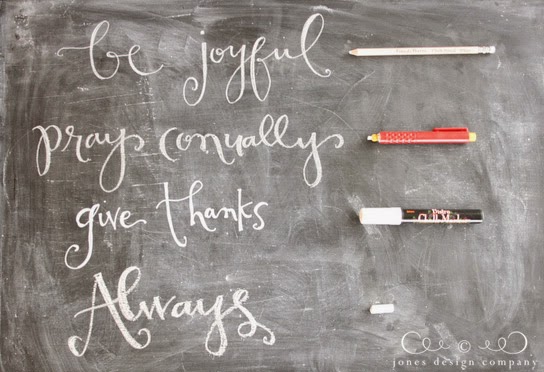 be joyful
pray conually
give thanks
Always
©
jones design company